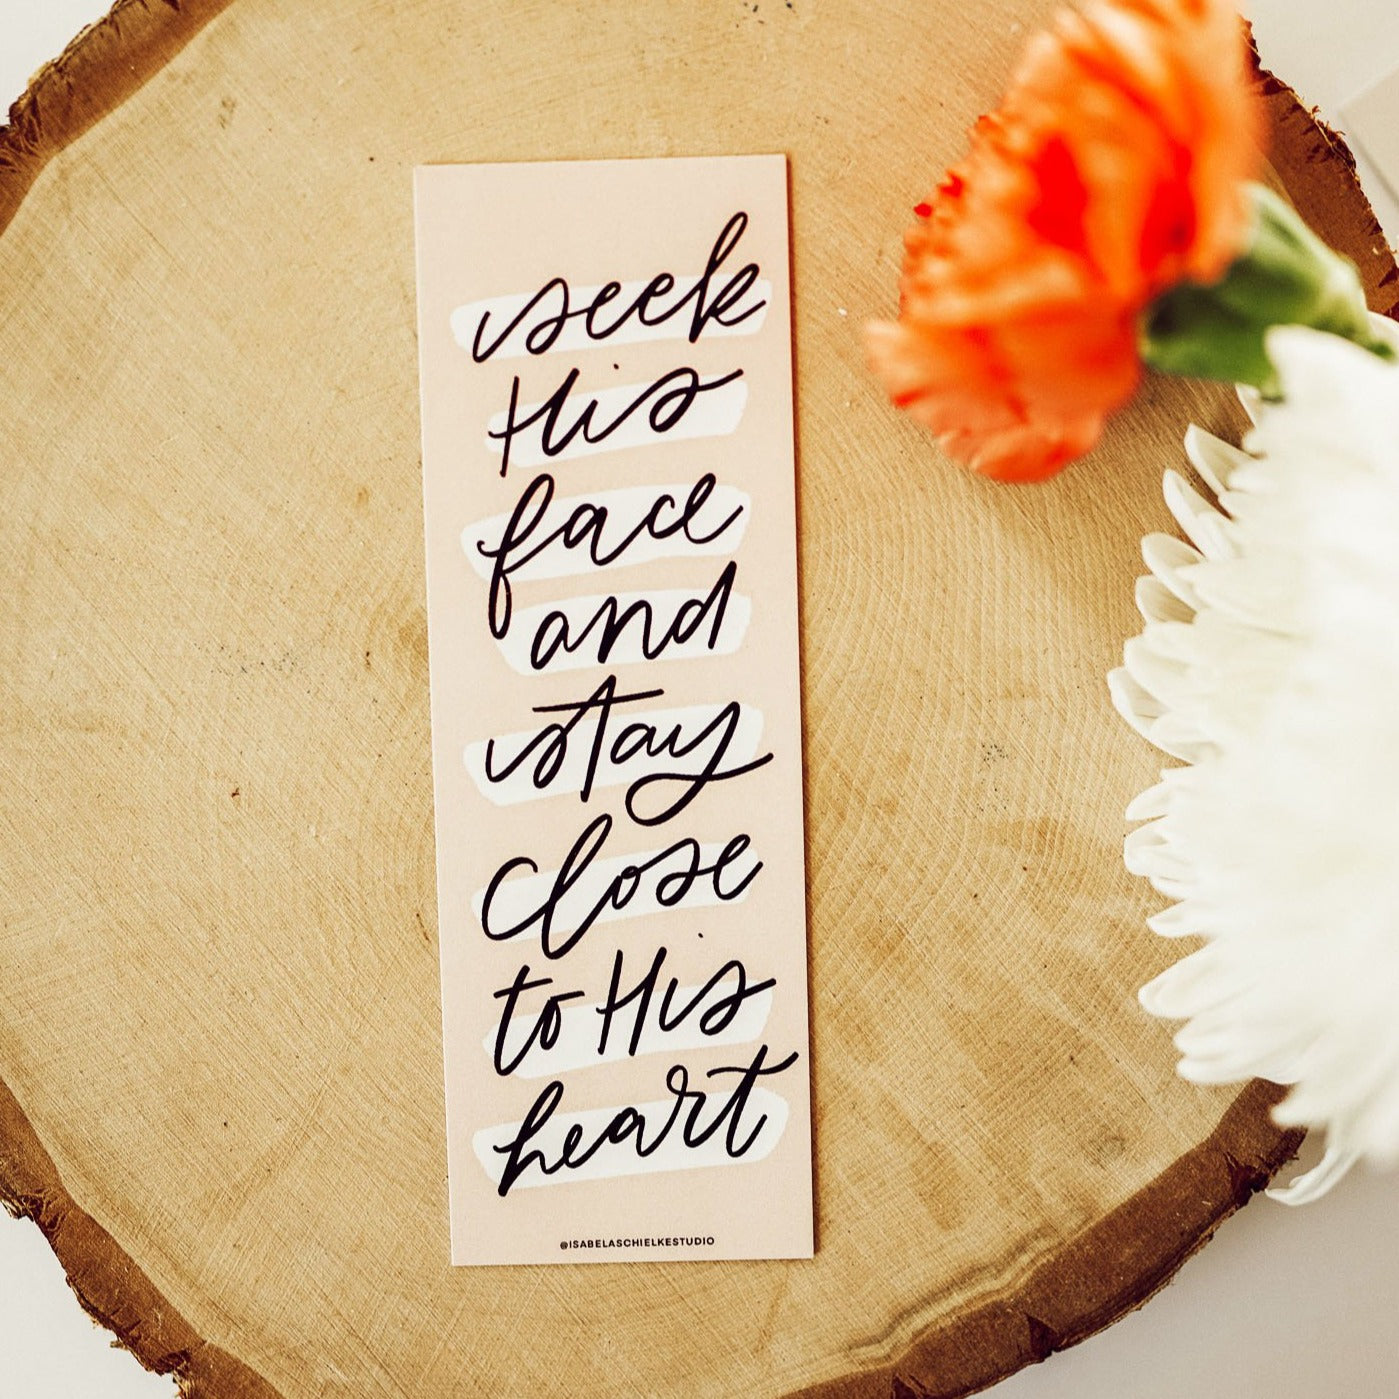 seek
His
face
and
stay
close
to His
heart
@ISABELASCHIELKESTUDIO